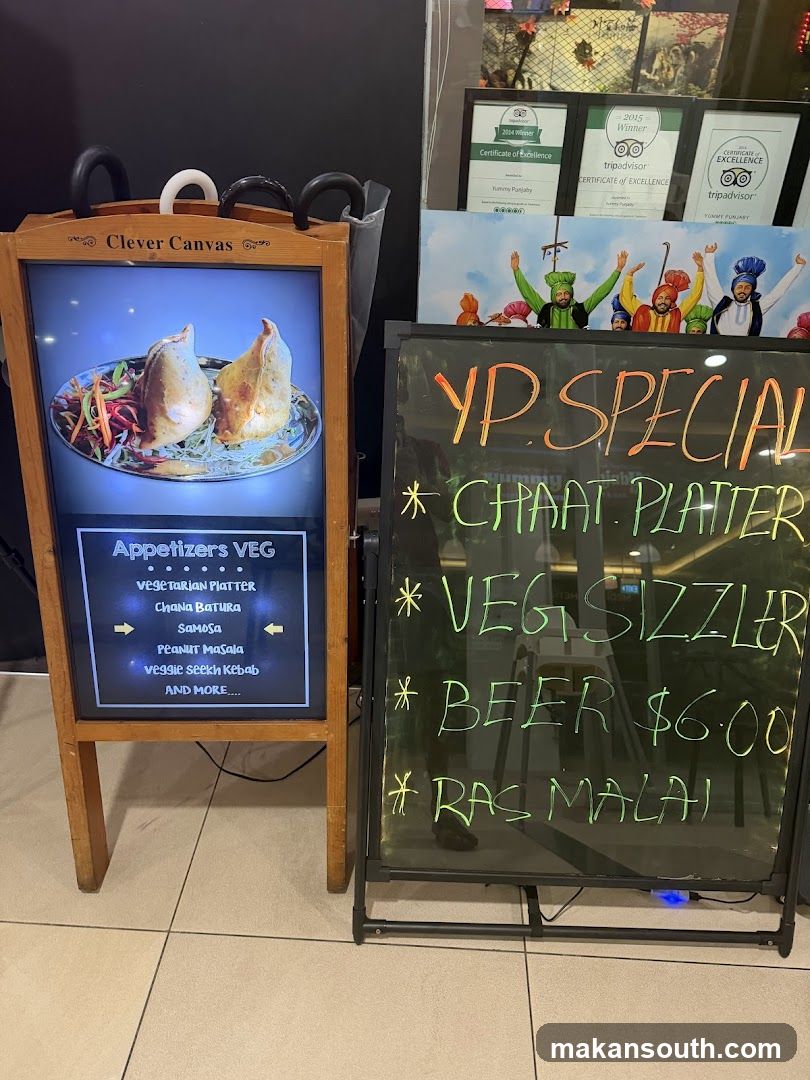 Clever Canvas
Appetizers VEG
VEGETARIAN PLATTER
CHANA BATURA
SAMOSA
PEANUT MASALA
VEGGIE SEEKH KEBAB
AND MORE....
tripadvisor
2014 Winner
Certificate of Excellence
Yummy Punjaby
2015
Winner
tripadvisor
CERTIFICATE of EXCELLENCE
Yummy Punjaby
CERTIFICATE of
EXCELLENCE
tripadvisor
YUMMY PUNJABY
YP.SPECIAL
* CHAAT.PLATTER
* VEG SIZZLER
* BEER $6.00
* RAS MALAI
makansouth.com